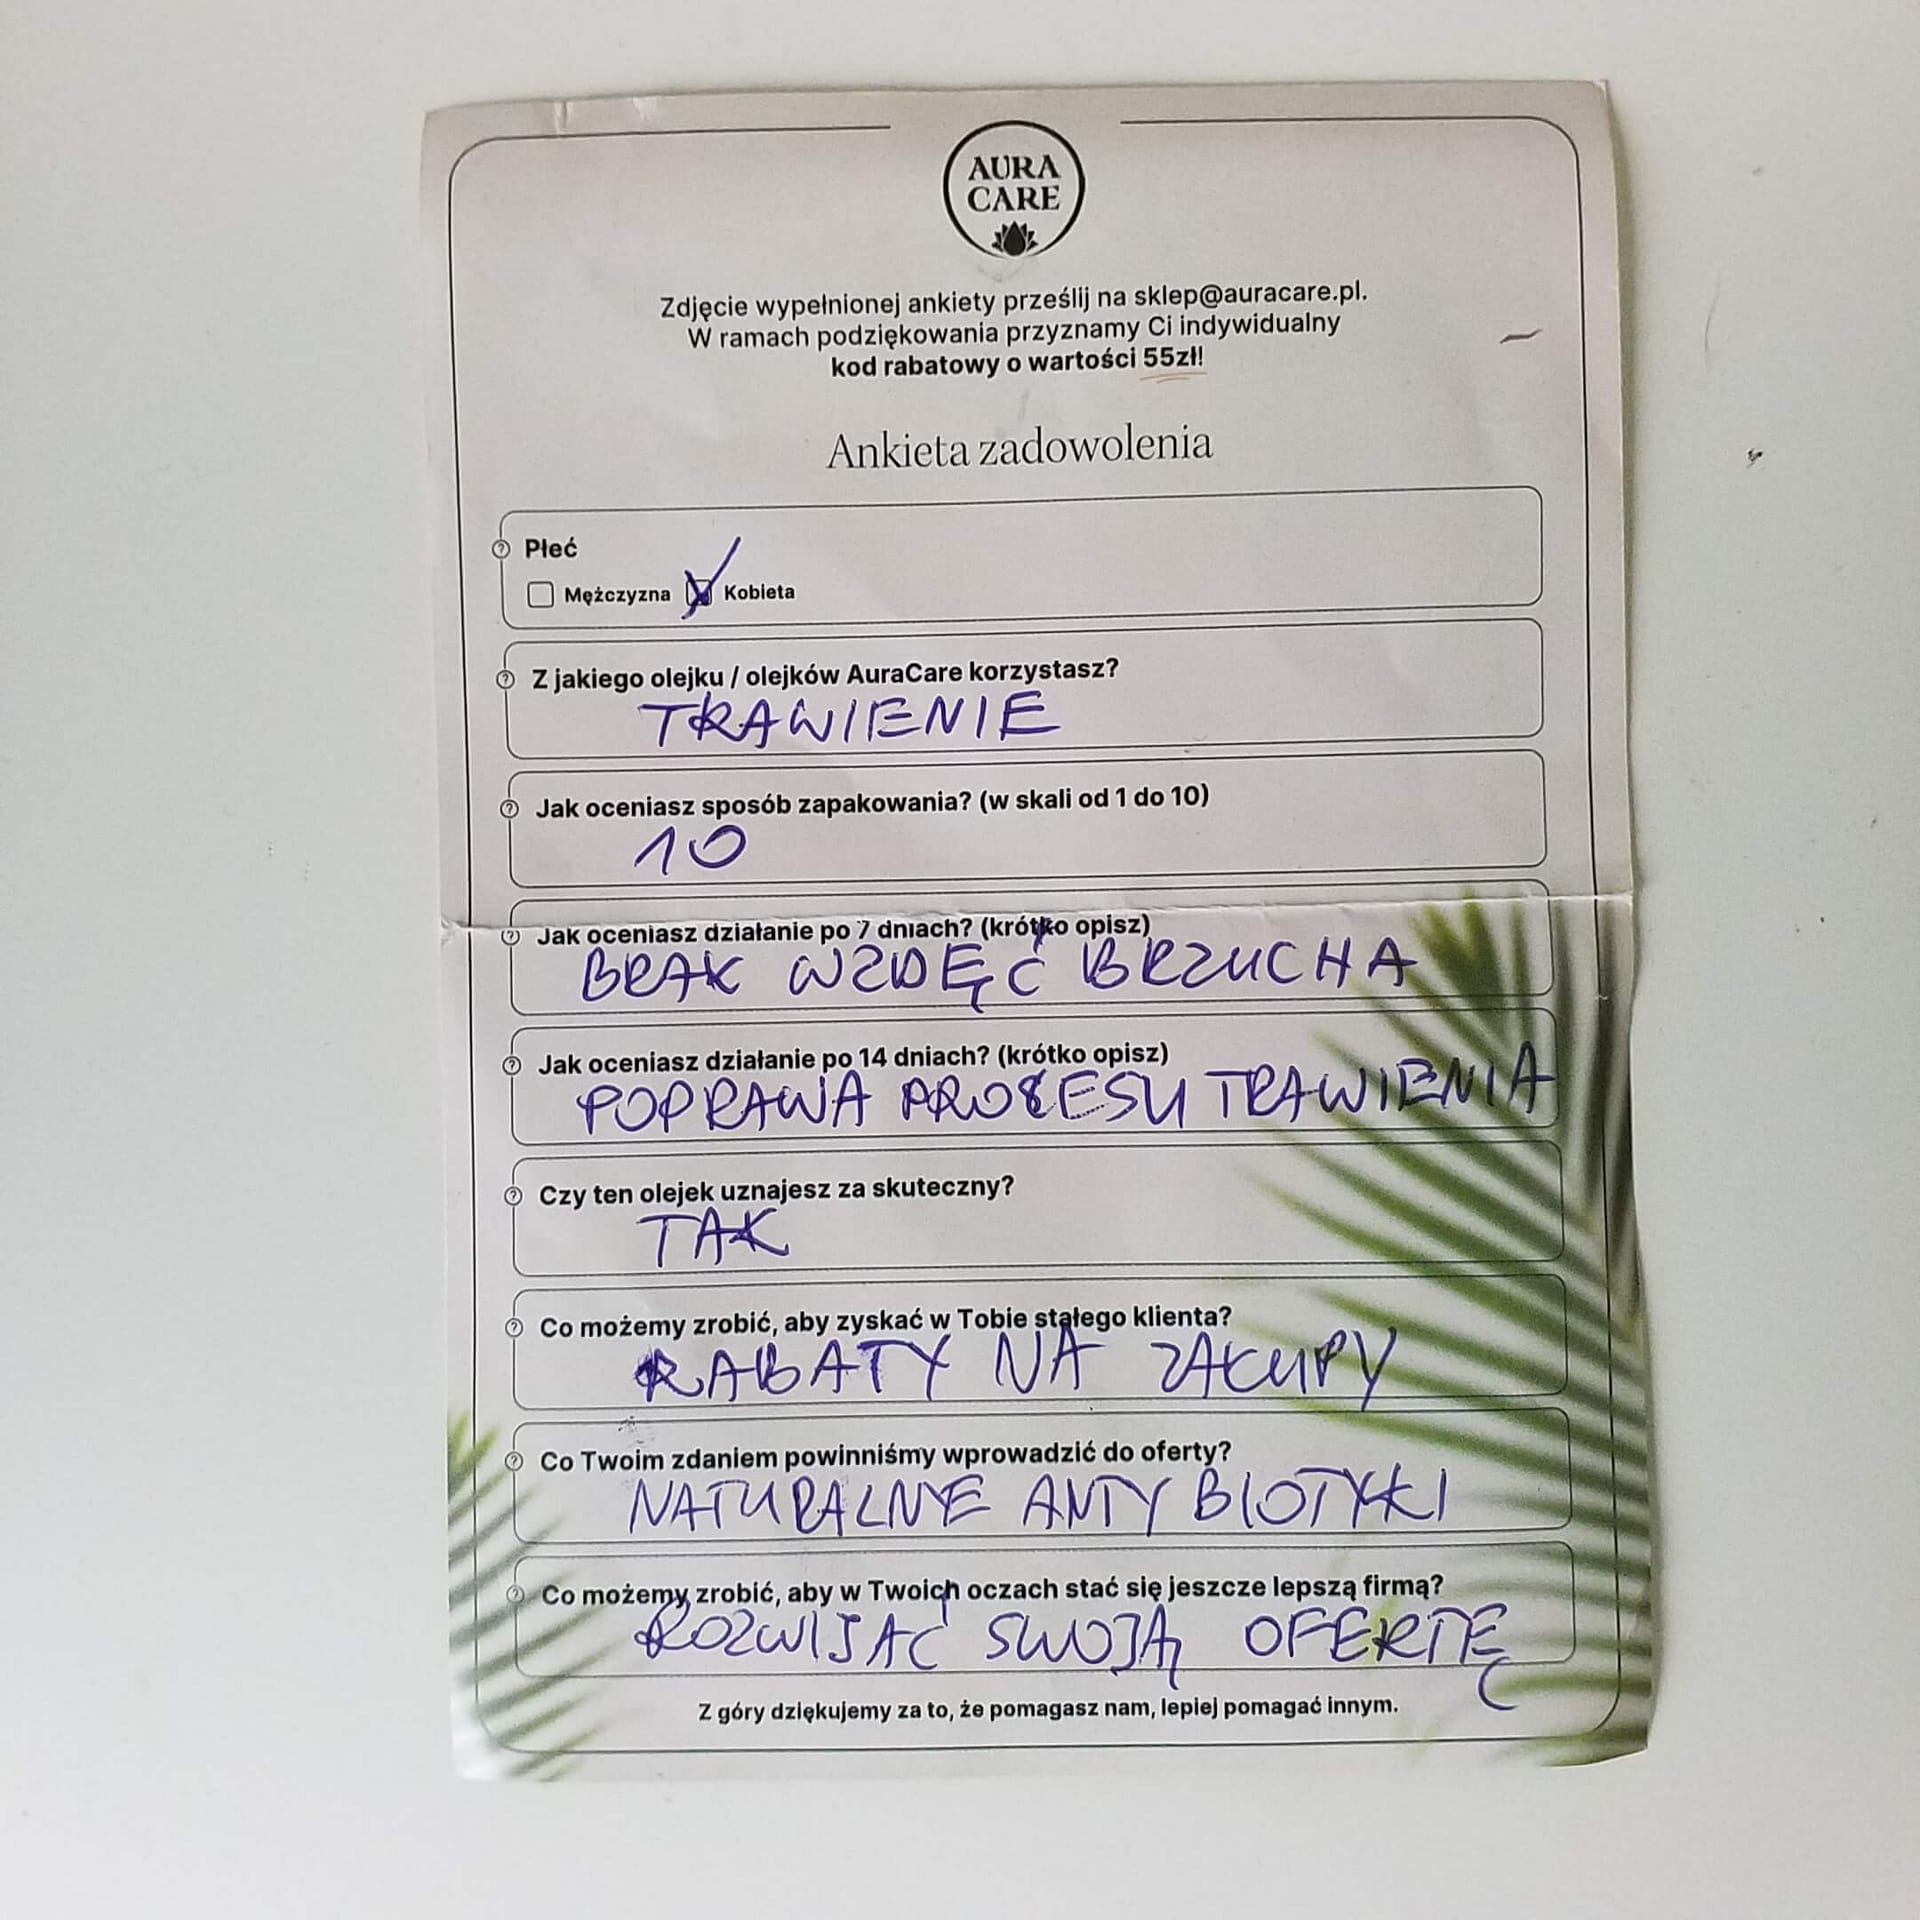 AURA
CARE
Zdjęcie wypełnionej ankiety prześlij na sklep@auracare.pl.
W ramach podziękowania przyznamy Ci indywidualny
kod rabatowy o wartości 55zł!
Ankieta zadowolenia
Płeć
Mężczyzna Kobieta
Z jakiego olejku / olejków AuraCare korzystasz?
TRAWIENIE
Jak oceniasz sposób zapakowania? (w skali od 1 do 10)
10
Jak oceniasz działanie po 7 dniach? (krótko opisz)
BRAK WZDĘĆ BRZUCHA
Jak oceniasz działanie po 14 dniach? (krótko opisz)
POPRAWA PROCESU TRAWIENIA
Czy ten olejek uznajesz za skuteczny?
TAK
Co możemy zrobić, aby zyskać w Tobie stałego klienta?
RABATY NA ZAKUPY
Co Twoim zdaniem powinniśmy wprowadzić do oferty?
NATURALNE ANTYBIOTYKI
Co możemy zrobić, aby w Twoich oczach stać się jeszcze lepszą firmą?
ROZWIJAĆ SWOJĄ OFERTĘ
Z góry dziękujemy za to, że pomagasz nam, lepiej pomagać innym.